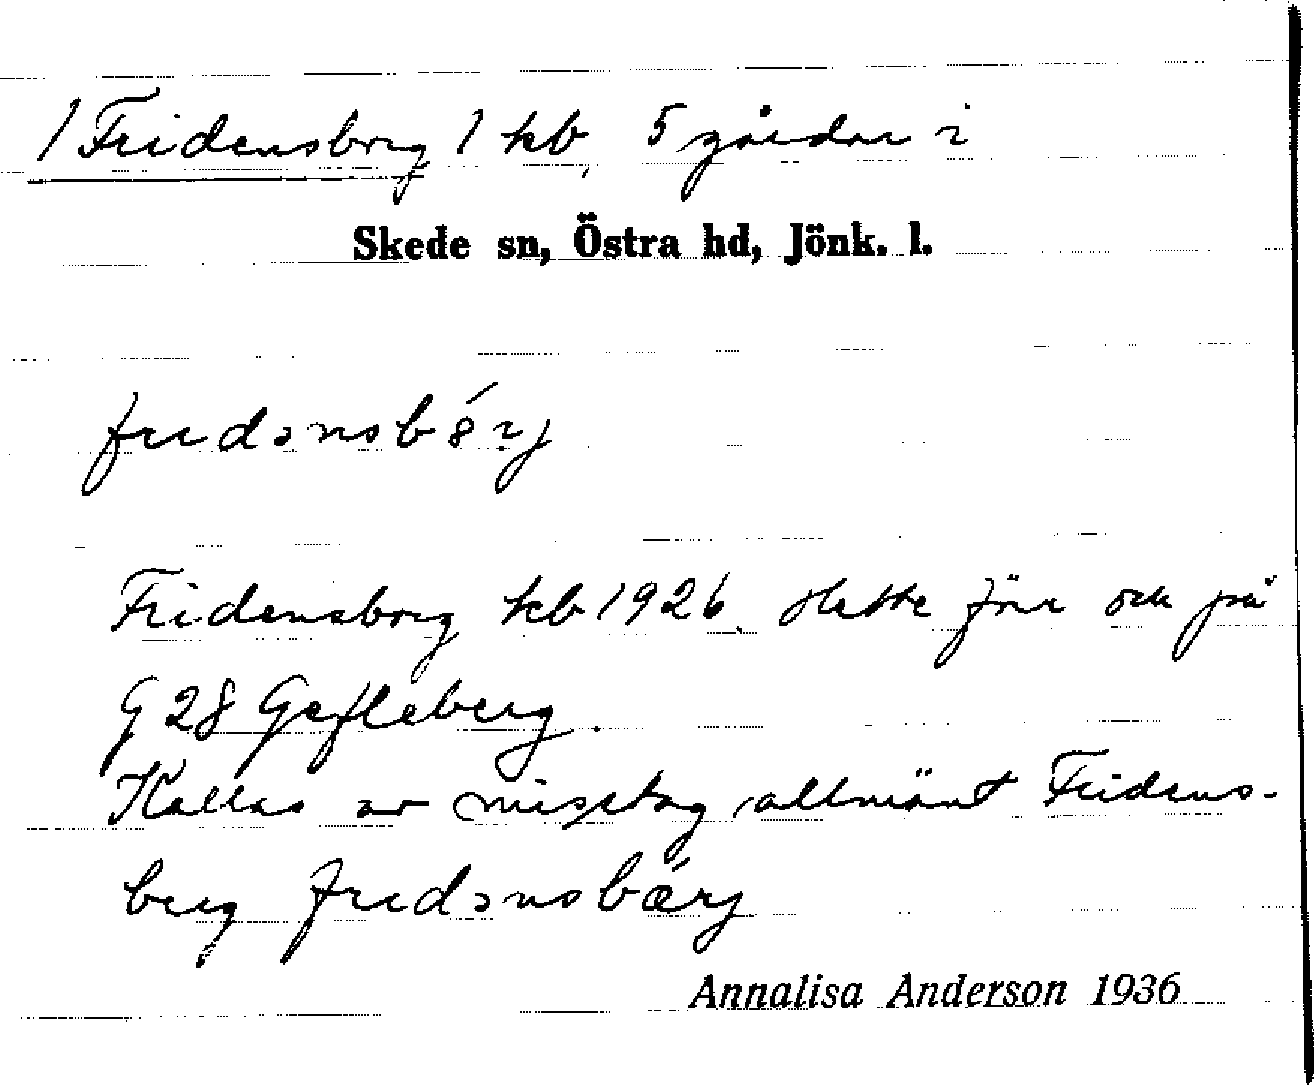 / Fridensborg 1 kb, 5 gårdar i
Skede sn, Östra hd, Jönk. l.
fridənsbórj
Fridensborg kb 1926. Hette förr och på
G 28 Gefleberg.
Kallas av misstag allmänt Fridens-
berg fridənsbǽrj
Annalisa Anderson 1936